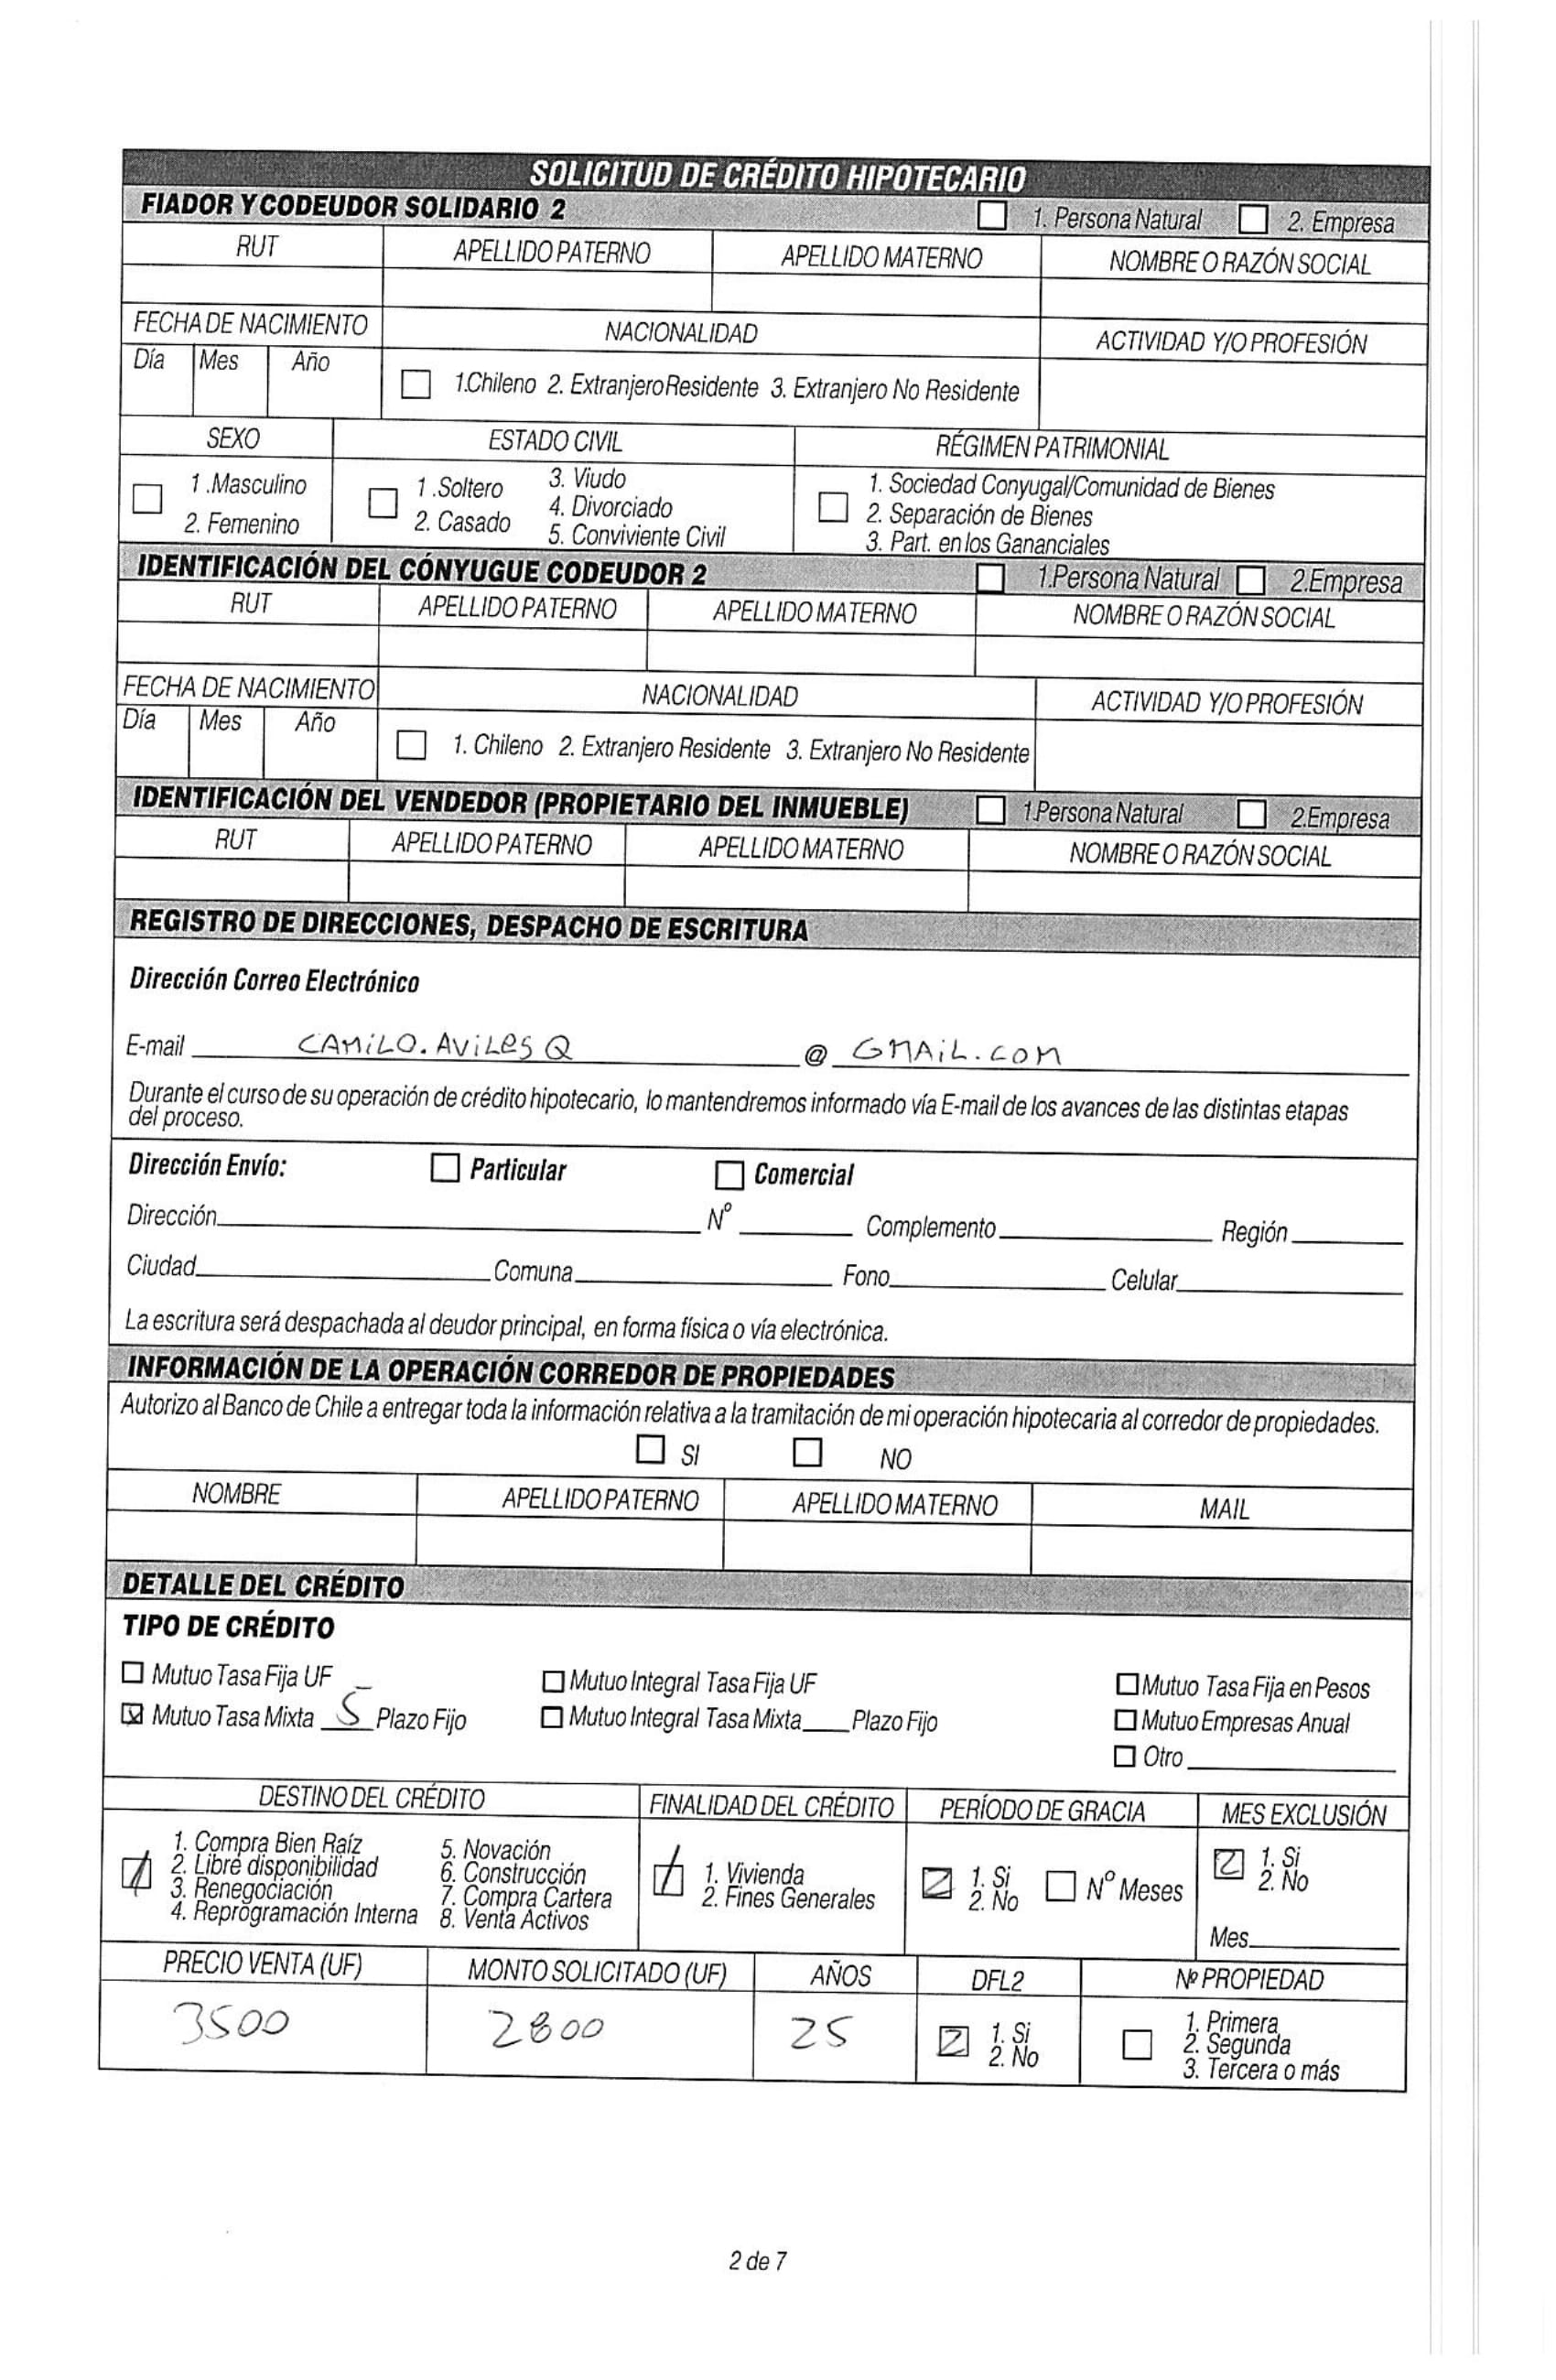 SOLICITUD DE CRÉDITO HIPOTECARIO
FIADOR Y CODEUDOR SOLIDARIO 2 1. Persona Natural 2. Empresa
RUT APELLIDO PATERNO APELLIDO MATERNO NOMBRE O RAZÓN SOCIAL
FECHA DE NACIMIENTO NACIONALIDAD ACTIVIDAD Y/O PROFESIÓN
Día Mes Año
1.Chileno 2. Extranjero Residente 3. Extranjero No Residente
SEXO ESTADO CIVIL RÉGIMEN PATRIMONIAL
1 .Masculino 1 .Soltero 3. Viudo 1. Sociedad Conyugal/Comunidad de Bienes
4. Divorciado 2. Separación de Bienes
2. Femenino 2. Casado 5. Conviviente Civil 3. Part. en los Gananciales
IDENTIFICACIÓN DEL CÓNYUGUE CODEUDOR 2 1.Persona Natural 2.Empresa
RUT APELLIDO PATERNO APELLIDO MATERNO NOMBRE O RAZÓN SOCIAL
FECHA DE NACIMIENTO NACIONALIDAD ACTIVIDAD Y/O PROFESIÓN
Día Mes Año
1. Chileno 2. Extranjero Residente 3. Extranjero No Residente
IDENTIFICACIÓN DEL VENDEDOR (PROPIETARIO DEL INMUEBLE) 1.Persona Natural 2.Empresa
RUT APELLIDO PATERNO APELLIDO MATERNO NOMBRE O RAZÓN SOCIAL
REGISTRO DE DIRECCIONES, DESPACHO DE ESCRITURA
Dirección Correo Electrónico
E-mail CAMILO.AVILES Q @ GMAIL.COM
Durante el curso de su operación de crédito hipotecario, lo mantendremos informado vía E-mail de los avances de las distintas etapas
del proceso.
Dirección Envío: Particular Comercial
Dirección Nº Complemento Región
Ciudad Comuna Fono Celular
La escritura será despachada al deudor principal, en forma física o vía electrónica.
INFORMACIÓN DE LA OPERACIÓN CORREDOR DE PROPIEDADES
Autorizo al Banco de Chile a entregar toda la información relativa a la tramitación de mi operación hipotecaria al corredor de propiedades.
SI NO
NOMBRE APELLIDO PATERNO APELLIDO MATERNO MAIL
DETALLE DEL CRÉDITO
TIPO DE CRÉDITO
Mutuo Tasa Fija UF Mutuo Integral Tasa Fija UF Mutuo Tasa Fija en Pesos
Mutuo Tasa Mixta 5 Plazo Fijo Mutuo Integral Tasa Mixta Plazo Fijo Mutuo Empresas Anual
Otro
DESTINO DEL CRÉDITO FINALIDAD DEL CRÉDITO PERÍODO DE GRACIA MES EXCLUSIÓN
1. Compra Bien Raíz 5. Novación 1. Si
2. Libre disponibilidad 6. Construcción 1. Vivienda 2 1. Si 2 2. No
3. Renegociación 7. Compra Cartera 2. Fines Generales 2. No Nº Meses
4. Reprogramación Interna 8. Venta Activos
Mes
PRECIO VENTA (UF) MONTO SOLICITADO (UF) AÑOS DFL2 Nº PROPIEDAD
3500 2800 25 2 1. Si 1. Primera
2. No 2. Segunda
3. Tercera o más
2 de 7